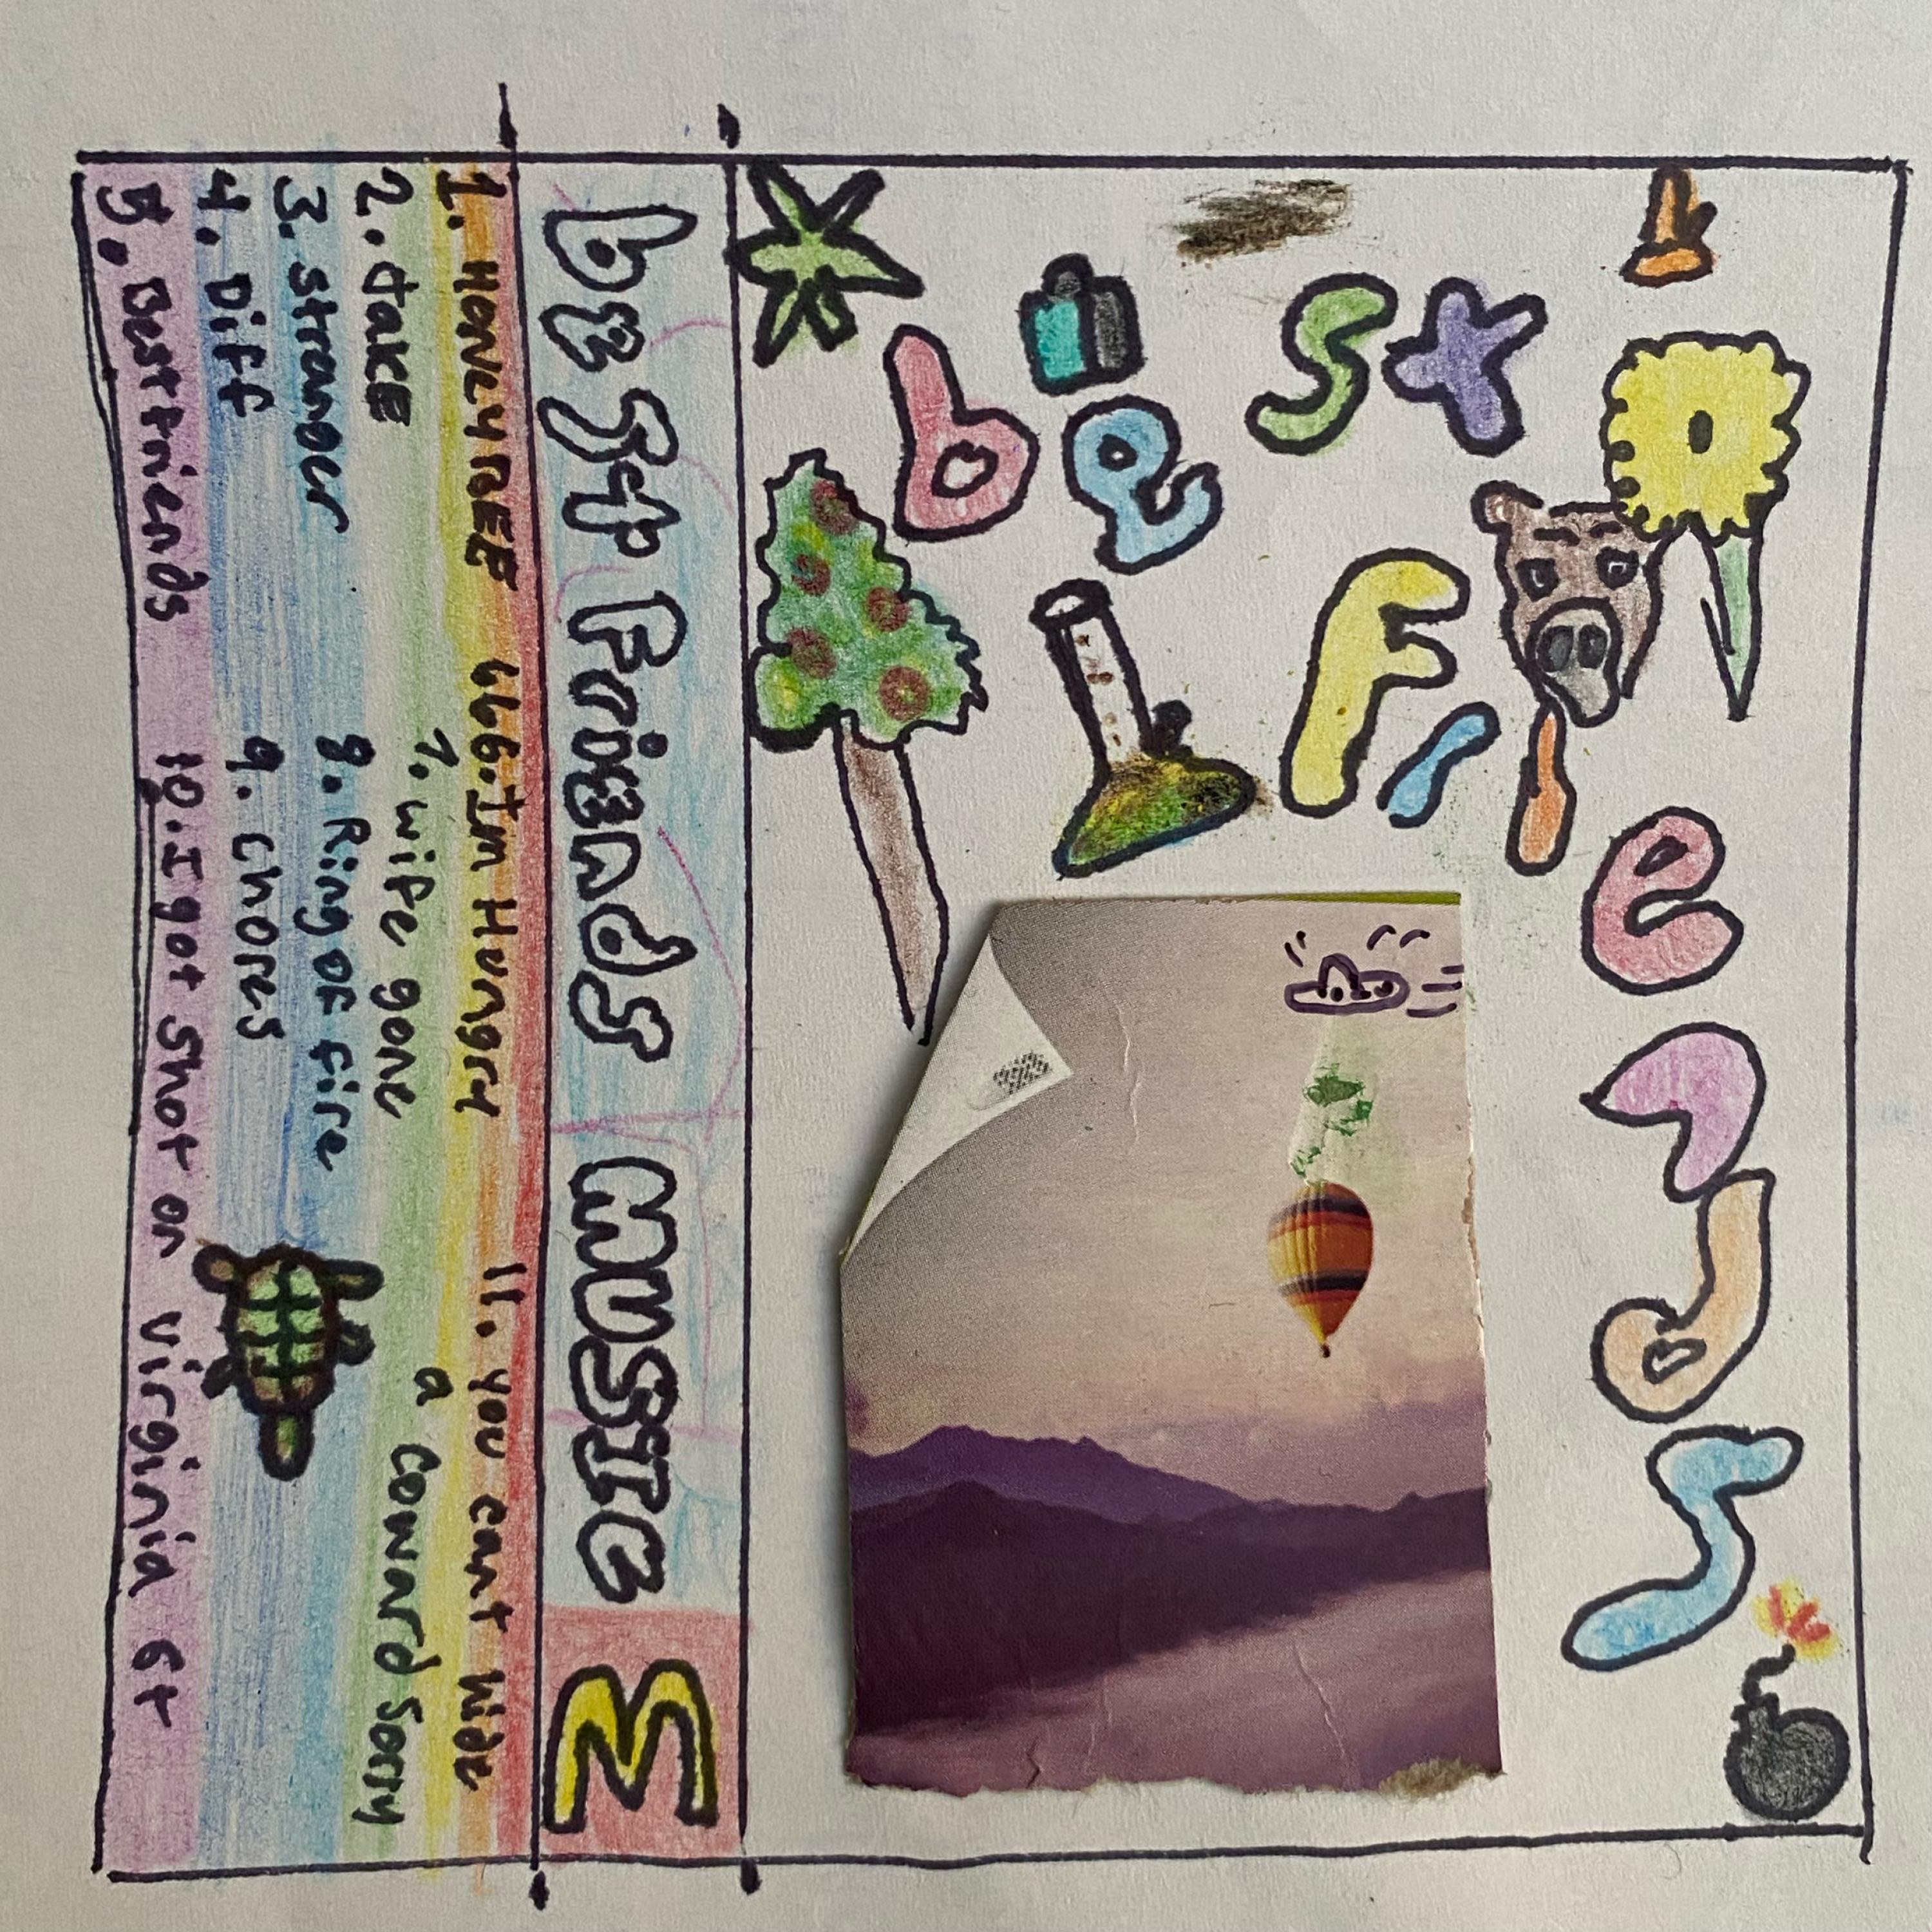 best
Friends
best Friends MUSIC
M
1. HONEYBEE
2. take
3. stranger
4. Diff
5. Bestfriends
666. Im Hungry
7. wife gone
8. Ring of Fire
9. chores
10. I got shot on Virginia St
11. you cant hide
a coward sorry